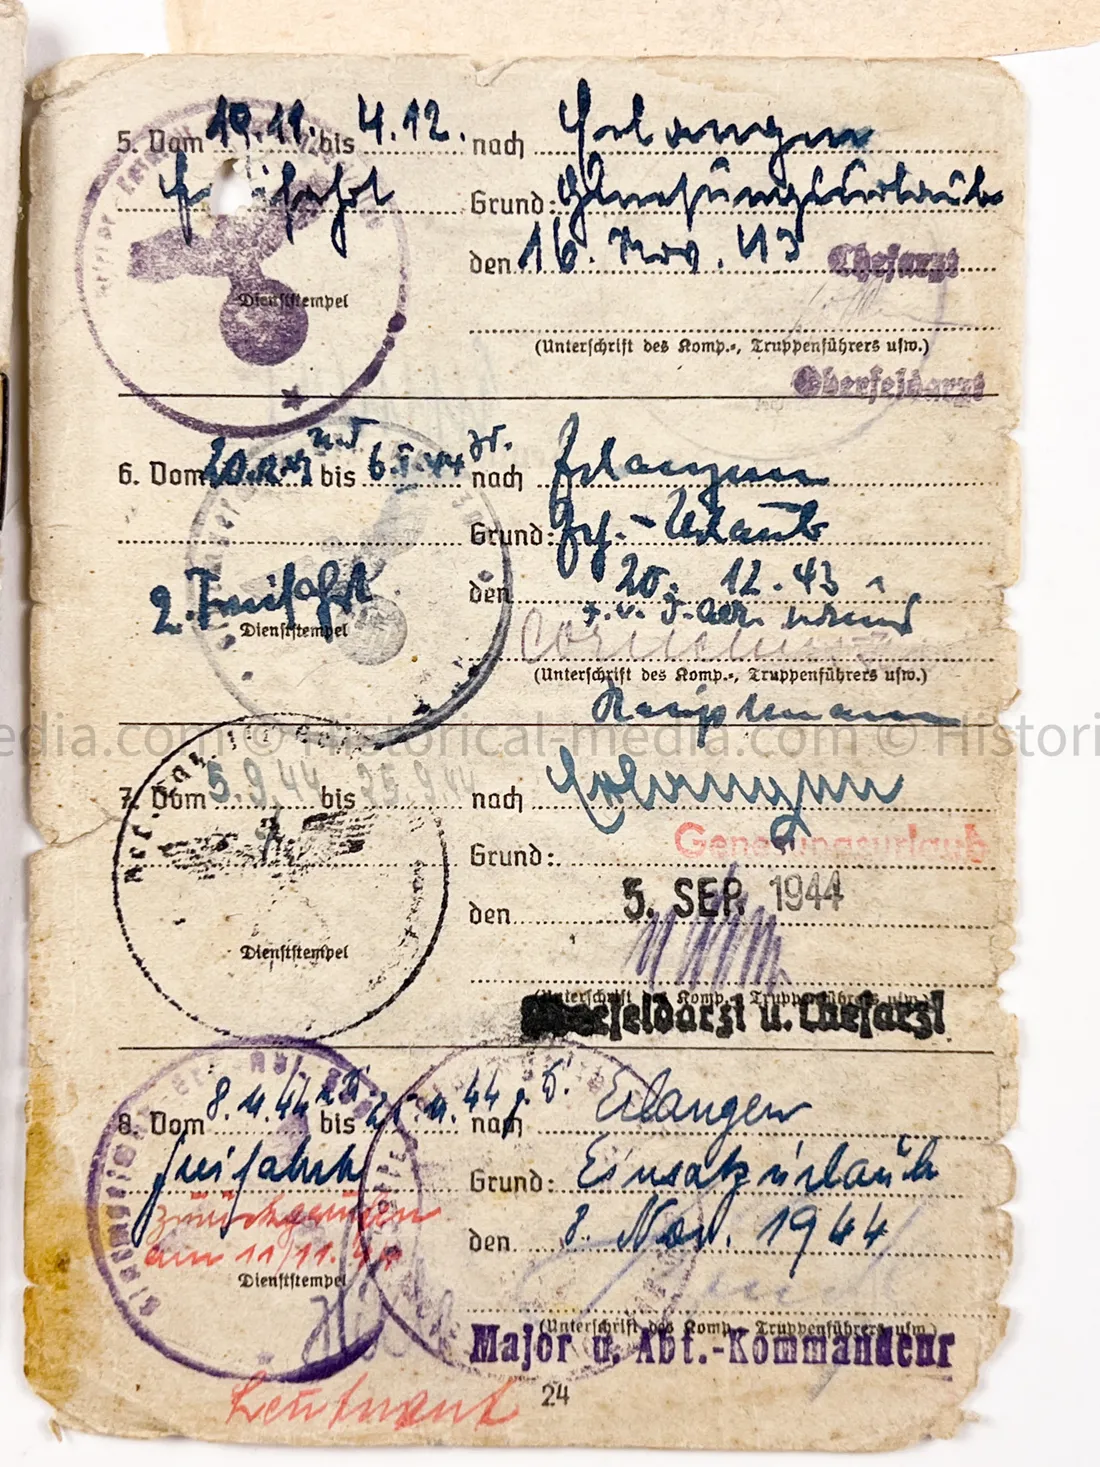 5. Vom 19.11. bis 4.12. nach Erlangen
Freifahrt Grund: Genesungsurlaub
den 16. Nov. 43 Chefarzt
Dienststempel
(Unterschrift des Komp.-, Truppenführers usw.)
Oberfeldarzt
6. Vom 20.12.43 bis 6.I.44 nach Erlangen
Grund: Urlaub
den 20. 12. 43
2. Freifahrt
Dienststempel
(Unterschrift des Komp.-, Truppenführers usw.)
Hauptmann
7. Vom 5.9.44 bis 25.9.44 nach Erlangen
Grund: Genesungsurlaub
den 5. SEP. 1944
Dienststempel
(Unterschrift des Komp.-, Truppenführers usw.)
Oberfeldarzt u. Chefarzt
8. Vom 8.11.44 bis 11.44 nach Erlangen
Freifahrt Grund: Einsatzurlaub
zurückgerufen
am 11/11.44 den 8. Nov. 1944
Dienststempel
(Unterschrift des Komp.-, Truppenführers usw.)
Major u. Abt.-Kommandeur
Leutnant 24
edia.com © Historical-media.com © Histori